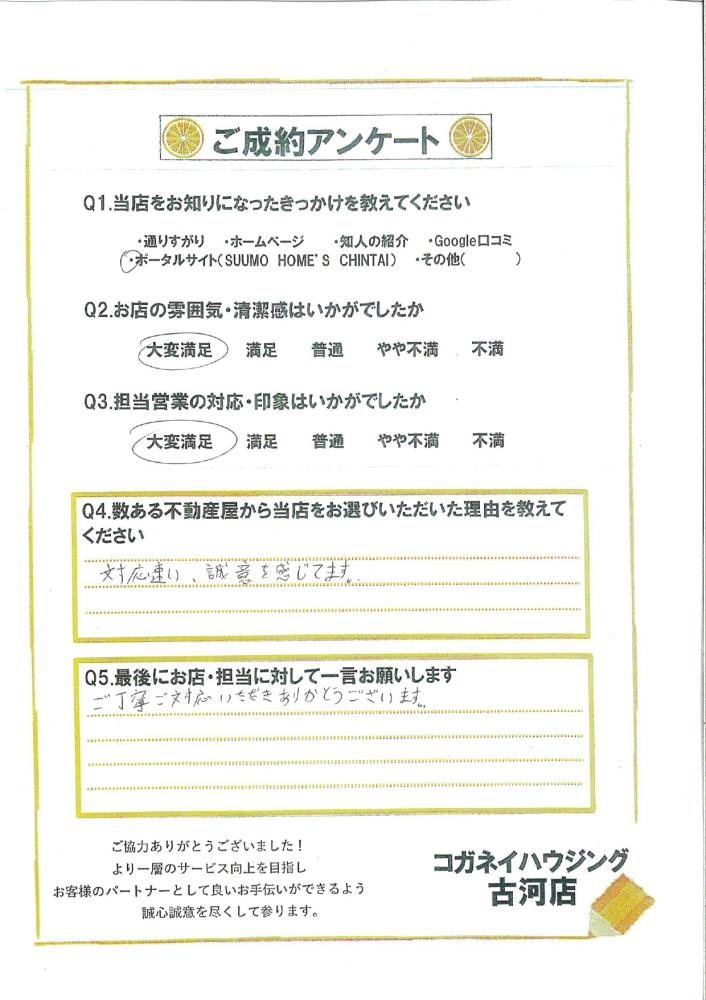 ご成約アンケート
Q1.当店をお知りになったきっかけを教えてください
・通りすがり ・ホームページ ・知人の紹介 ・Google口コミ
・ポータルサイト(SUUMO HOME'S CHINTAI) ・その他( )
Q2.お店の雰囲気・清潔感はいかがでしたか
大変満足 満足 普通 やや不満 不満
Q3.担当営業の対応・印象はいかがでしたか
大変満足 満足 普通 やや不満 不満
Q4.数ある不動産屋から当店をお選びいただいた理由を教えて
ください
対応速い、誠意を感じてます。
Q5.最後にお店・担当に対して一言お願いします
ご丁寧ご対応いただきありがとうございます。
ご協力ありがとうございました！
より一層のサービス向上を目指し
お客様のパートナーとして良いお手伝いができるよう
誠心誠意を尽くして参ります。
コガネイハウジング
古河店